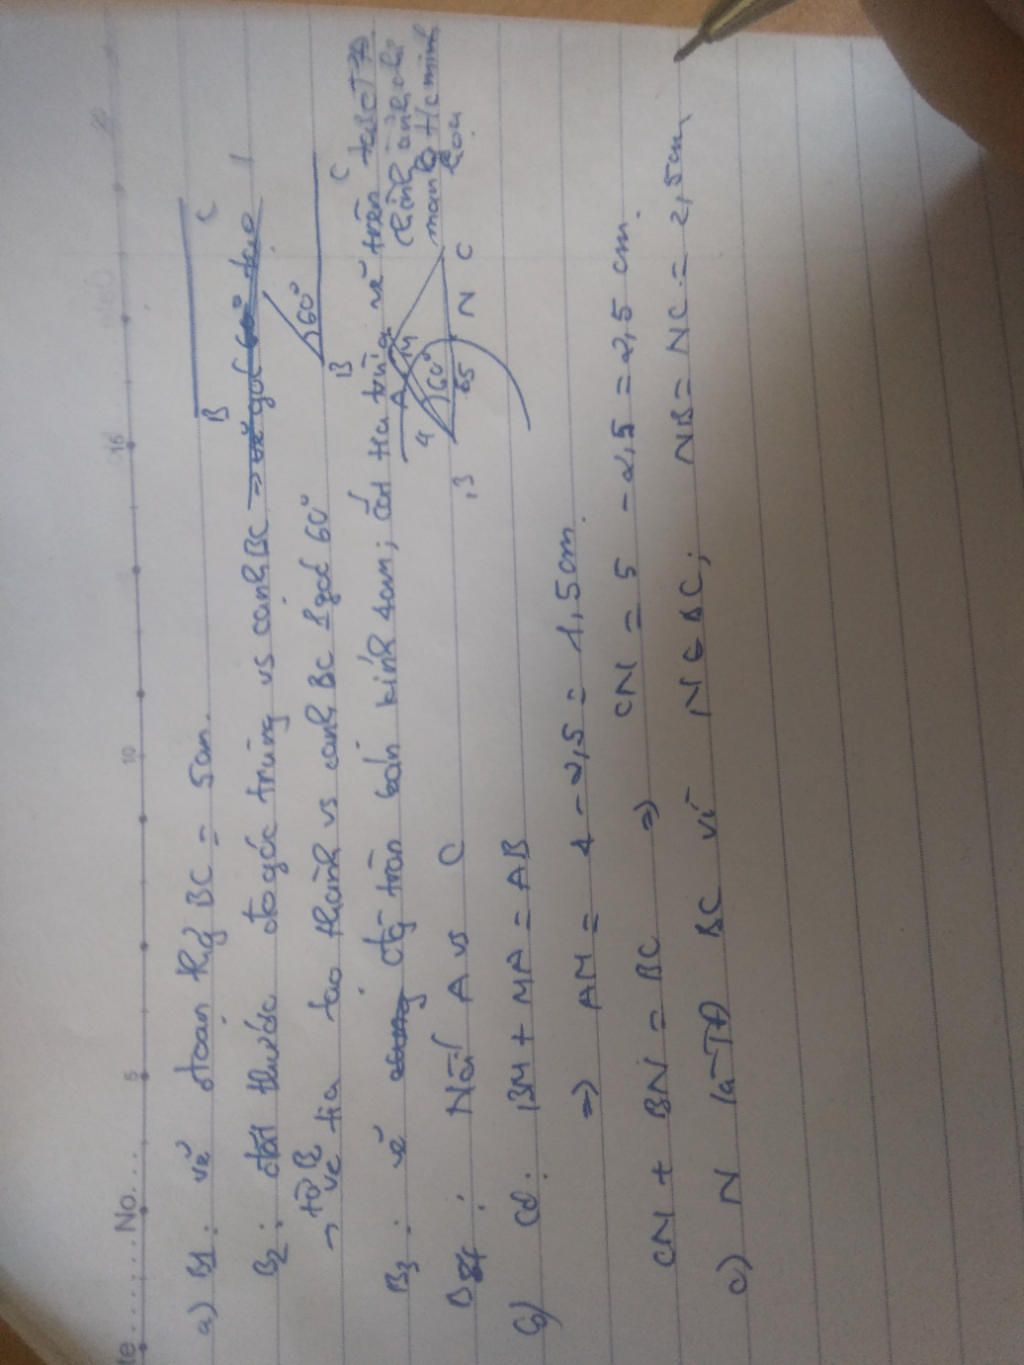 te ...... No. ...
5 10 15 20
a) B1: vẽ đoạn thẳg BC = 5cm. B C
B2: đặt thước đo góc trùng vs cạnh BC
→ từ B vẽ tia tạo thành vs cạnh BC 1 góc 60° B 60° C
B3: vẽ đg tròn bán kính 4cm; cắt tia vẽ trên tại
hình ảnh chỉ
mang tc minh
họa
A M 4 60° B N C
B4: Nối A vs C
b) Có: BM + MA = AB
⇒ AM = 4 - 2,5 = 1,5cm.
CN + BN = BC ⇒ CN = 5 - 2,5 = 2,5 cm.
c) N là TĐ BC vì N ∈ BC; NB = NC = 2,5cm